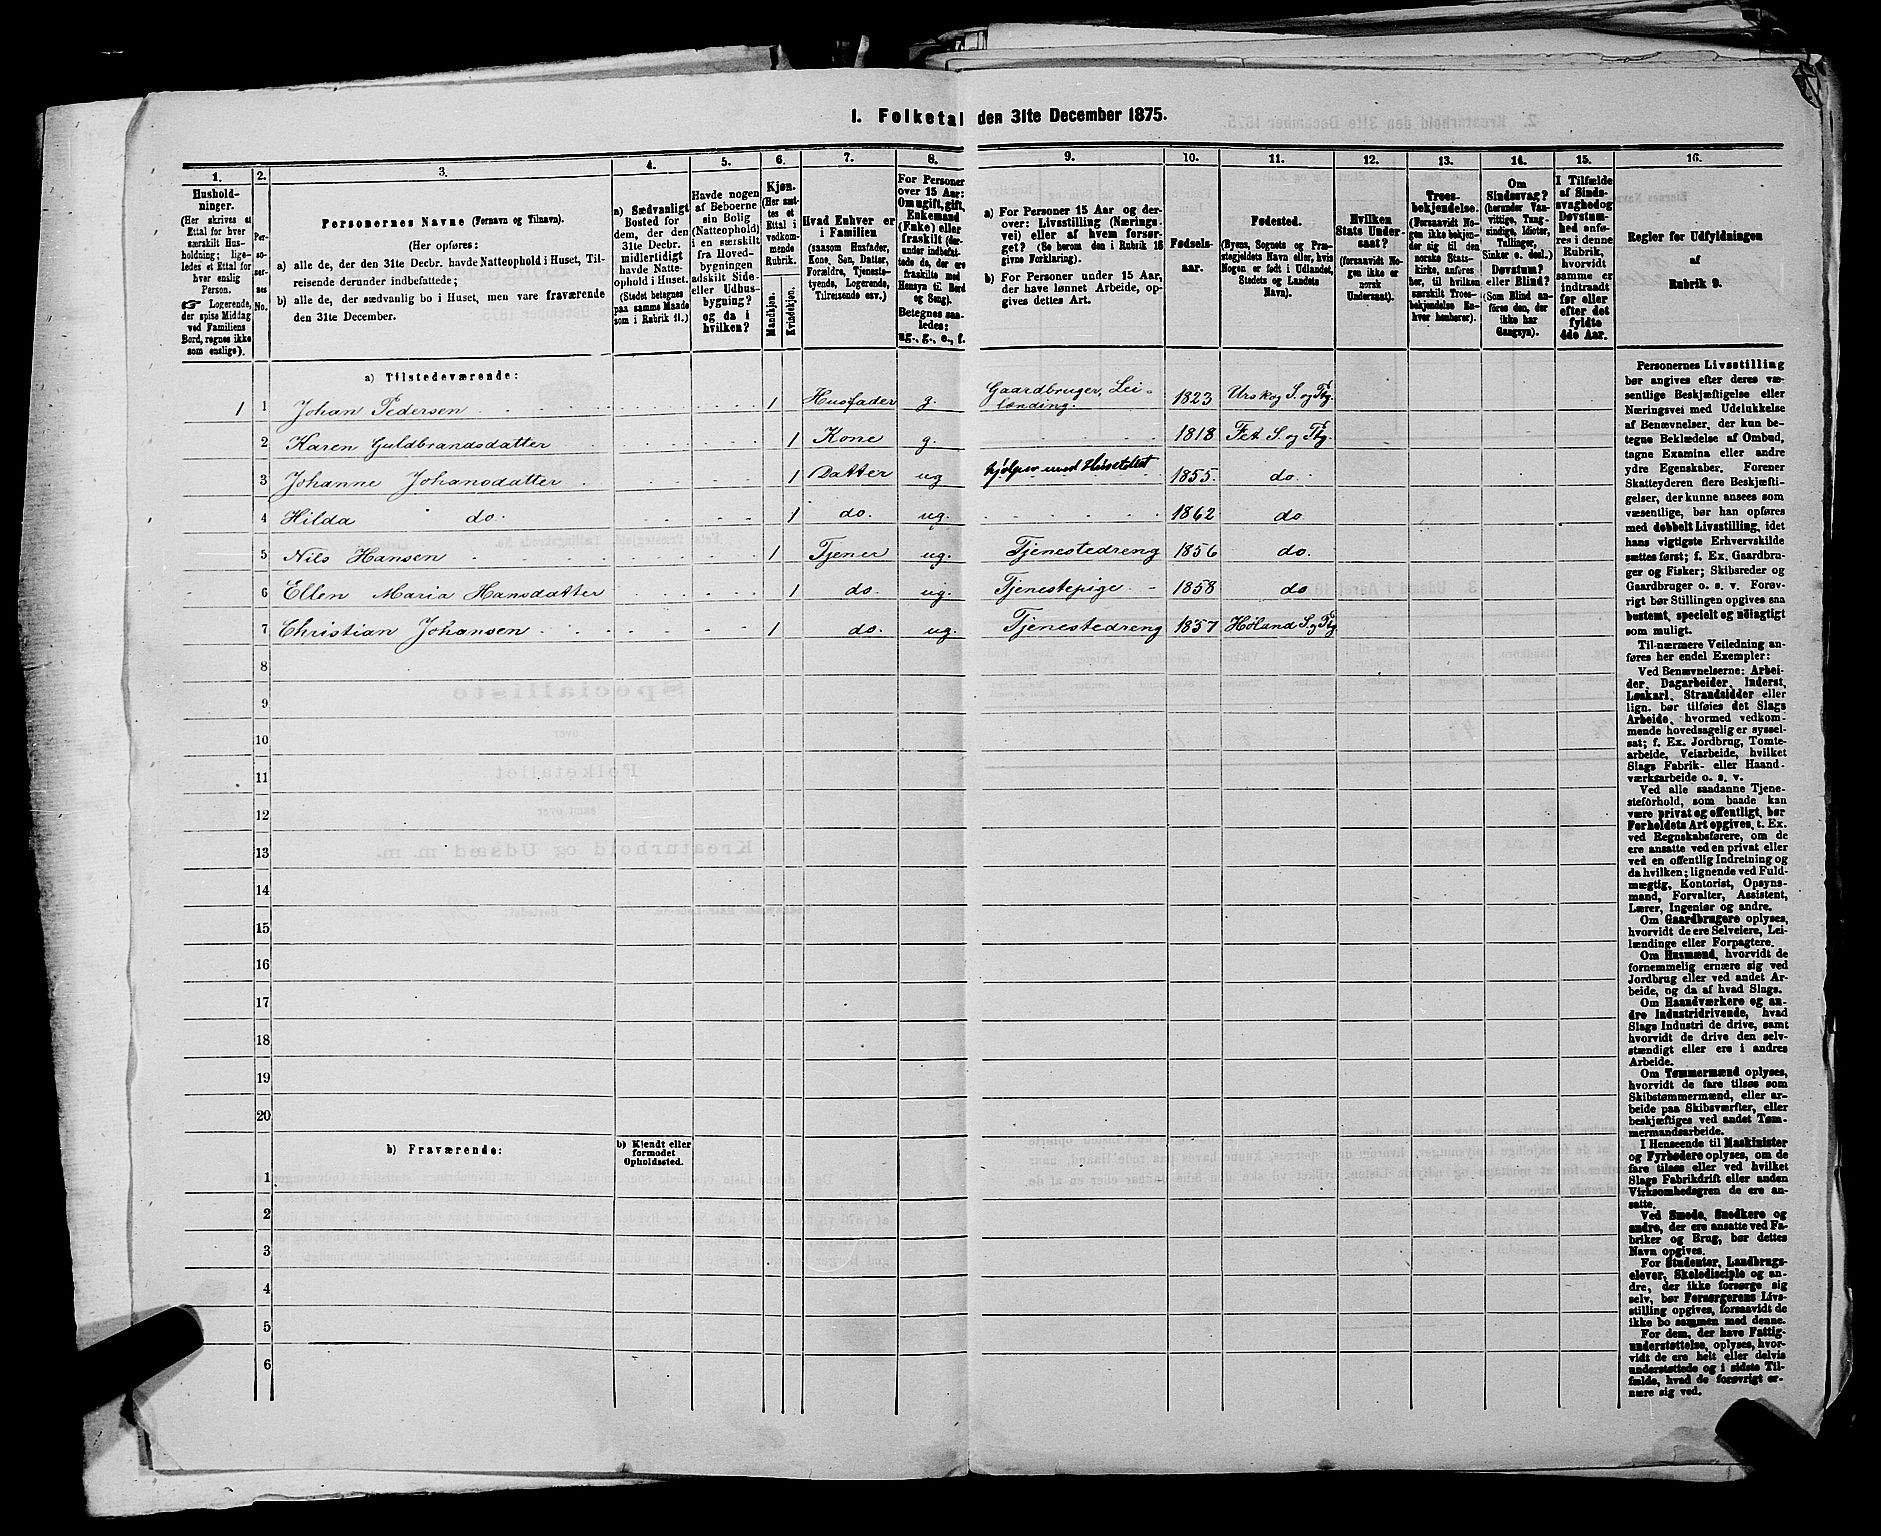 1. Folketal den 31te December 1875.
1. 2. 3. 4. 5. 6. 7. 8. 9. 10. 11. 12. 13. 14. 15. 16.
Hushold-
ninger.
(Her skrives et
Ettal for hver
særskilt Hus-
holdning; lige-
ledes et Ettal for
hver enslig
Person.
☞ Logerende,
der spise Middag
ved Familiens
Bord, regnes ikke
som enslige).
Per-
so-
ner-
nes
No.
Personernes Navne (Fornavn og Tilnavn).
(Her opføres:
a) alle de, der den 31te Decbr. havde Natteophold i Huset, Til-
reisende derunder indbefattede;
b) alle de, der sædvanlig bo i Huset, men vare fraværende
den 31te December.
a) Sædvanligt
Bosted for
dem, der den
31te Decbr.
midlertidigt
havde Natte-
ophold i Huset.
(Stedet betegnes
paa samme Maade
som i Rubrik 11.)
Havde nogen
af Beboerne
sin Bolig
(Natteophold)
i en særskilt
fra Hoved-
bygningen
adskilt Side
eller Udhus-
bygning?
og da i
hvilken?
Kjøn.
(Her sæt-
tes et
Ettal i
vedkom-
mende
Rubrik.
Mandkjøn.
Kvindekjøn.
Hvad Enhver er
i Familien
(saasom Husfader,
Kone, Søn, Datter,
Forældre, Tjeneste-
tyende, Logerende,
Tilreisende osv.)
For Personer
over 15 Aar:
Om ugift, gift,
Enkemand
(Enke) eller
fraskilt (der-
under indbefat-
tede de, der ere
fraskilte med
Hensyn til Bord
og Seng).
Betegnes saa-
ledes:
ug., g., e., f.
a) For Personer 15 Aar og der-
over: Livsstilling (Nærings-
vei) eller af hvem forsør-
get? (Se herom den i Rubrik 16
givne Forklaring).
b) For Personer under 15 Aar,
der have lønnet Arbeide, op-
gives dettes Art.
Fødsels-
aar.
Fødested.
(Byens, Sognets og Præ-
stegjeldets Navn eller, hvis
Nogen er født i Udlandet,
Stedets og Landets
Navn).
Hvilken
Stats Under-
saat?
(forsaavidt No-
gen ikke er
norsk
Undersaat).
Troes-
bekjendelse.
(Forsaavidt No-
gen ikke bekjen-
der sig til den
norske Stats-
kirke, anføres
her, til hvilken
særskilt Troes-
bekjendelse En-
hver henhører).
Om
Sindssvag?
(herunder Van-
vittige, Tung-
sindige, Idioter,
Tullinger,
Sinker o. desl.)
Døvstum?
eller Blind?
(Som Blind an-
føres den, der
ikke har
Gangsyn).
I Tilfælde
af Sinds-
svaghed og
Døvstum-
hed anfø-
res i denne
Rubrik,
hvorvidt
samme er
indtraadt
før eller
efter det
fyldte
4de Aar.
Regler for Udfyldningen
af
Rubrik 9.
a) Tilstedeværende:
1 1 Johan Pedersen 1 Husfader g. Gaardbruger, Lei-
lænding. 1823 Urskog S. og Pg.
2 Karen Guldbrandsdatter 1 Kone g. 1818 Fet S. og Pg.
3 Johanne Johansdatter 1 Datter ug hjelper med Husstellet 1855. do.
4 Hilda do. 1 do. ug. 1862 do
5 Nils Hansen 1 Tjener ug. Tjenestedreng 1856 do.
6 Ellen Maria Hansdatter 1 do. ug. Tjenestepige 1858 do
7 Christian Johansen 1 do. ug. Tjenestedreng 1857 Høland S. og Pg
8
9
10
11
12
13
14
15
16
17
18
19
20
b) Fraværende:
b) Kjendt eller
formodet
Opholdssted.
1
2
3
4
5
6
Personernes Livsstilling
bør angives efter deres væ-
sentlige Beskjæftigelse eller
Næringsvei med Udelukkelse
af Benævnelser, der kun be-
tegne Beklædelse af Ombud,
tagne Examina eller andre
ydre Egenskaber. Forener
Skatteyderen flere Beskjæfti-
gelser, der kunne ansees som
væsentlige, bør han opføres
med dobbelt Livsstilling, idet
hans vigtigste Erhvervskilde
sættes først; f. Ex. Gaardbru-
ger og Fisker; Skibsreder og
Gaardbruger o. s. v. Forøv-
rigt bør Stillingen opgives saa
bestemt, specielt og nøiagtigt
som muligt.
Til nærmere Veiledning an-
føres her endel Exempler:
Ved Benævnelserne: Arbei-
der, Dagarbeider, Inderst,
Løskarl, Strandsidder eller
lign. bør tilføies det Slags
Arbeide, hvormed vedkom-
mende hovedsagelig er syssel-
sat; f. Ex. Jordbrug, Tomte-
arbeide, Veiarbeide, hvilket
Slags Fabrik- eller Haand-
værksarbeide o. s. v.
Ved alle saadanne Tjene-
steforhold, som baade kan
være privat og offentligt, bør
Forholdets Art opgives, t. Ex.
ved Regnskabsførere, om de
ere ansatte ved en privat eller
ved en offentlig Indretning og
da hvilken; lignende ved Fuld-
mægtig, Kontorist, Opsyns-
mand, Forvalter, Assistent,
Lærer, Ingeniør og andre.
Om Gaardbrugere oplyses,
hvorvidt de ere Selveiere, Lei-
lændinge eller Forpagtere.
Om Husmænd, hvorvidt de
fornemmelig ernære sig ved
Jordbrug eller ved andet Ar-
beide, og da af hvad Slags.
Om Haandværkere og an-
dre Industridrivende, hvad
Slags Industri de drive, samt
hvorvidt de drive den selv-
stændigt eller ere i andres
Arbeide.
Om Tømmermænd oplyses,
hvorvidt de fare tilsøs som
Skibstømmermænd, eller ar-
beide paa Skibsværfter, eller
beskjæftiges ved andet Tøm-
mermandsarbeide.
I Henseende til Maskinister
og Fyrbødere oplyses, om de
fare tilsøs eller ved hvilket
Slags Fabrikdrift eller anden
Virksomhedsgren de ere an-
satte.
Ved Smede, Snedkere og
andre, der ere ansatte ved Fa-
briker og Brug, bør dettes
Navn opgives.
For Studenter, Landbrugs-
elever, Skoledisciple og an-
dre, der ikke forsørge sig
selv, bør Forsørgerens Livs-
stilling opgives, forsaavidt de
ikke bo sammen med denne.
For dem, der have Fattig-
understøttelse, oplyses, hvor-
vidt de ere helt eller delvis
understøttede og i sidste Til-
fælde, hvad de forøvrigt er-
nære sig ved.